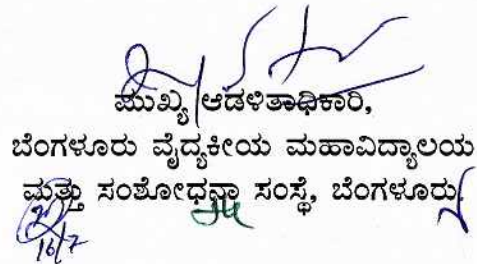 ಮುಖ್ಯ ಆಡಳಿತಾಧಿಕಾರಿ,
ಬೆಂಗಳೂರು ವೈದ್ಯಕೀಯ ಮಹಾವಿದ್ಯಾಲಯ
ಮತ್ತು ಸಂಶೋಧನಾ ಸಂಸ್ಥೆ, ಬೆಂಗಳೂರು.
16/7